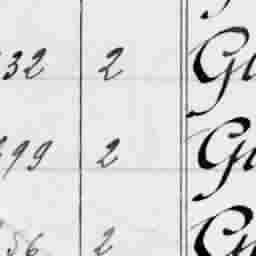 32 2 Gu
99 2 Gu
56 2 Gu